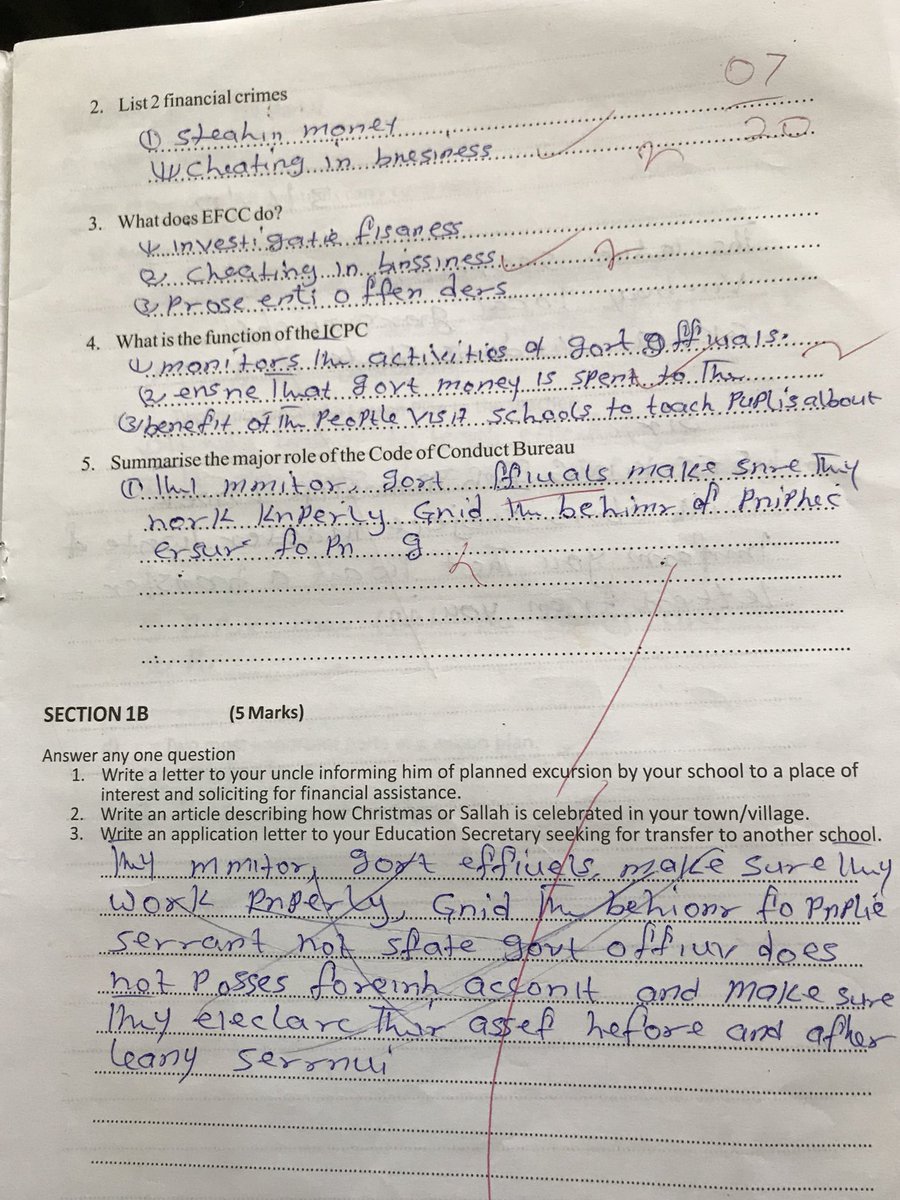 07
20
2. List 2 financial crimes
① steahin money
(ii) cheating in bnesiness
2
3. What does EFCC do?
investigatie fisaness
2
② cheating in binssiness
③ Prose enti offen ders
4. What is the function of the ICPC
① monitors the activities of gort offiuals:
2
(2) ensne That govt money is spent to The
(3) benefit of The PeoPtle VisiT schools to toach PuPlis albout
5. Summarise the major role of the Code of Conduct Bureau
① mmitor, gort ffiuals make snre Thiy
work knperly Gnid The behimr of
ersur fo Pn g
2
SECTION 1B (5 Marks)
Answer any one question
1. Write a letter to your uncle informing him of planned excursion by your school to a place of
interest and soliciting for financial assistance.
2. Write an article describing how Christmas or Sallah is celebrated in your town/village.
3. Write an application letter to your Education Secretary seeking for transfer to another school.
Thiy mmitor, govt effiuals, make sure Thuy
Work Pnperly, Gnid The behionr fo Pnplie
serrant not sfate govt offiuv does
not Posses foreinh acconit and make sure
Thuy eleclare Thir assef hefore and afher
leany serrnui